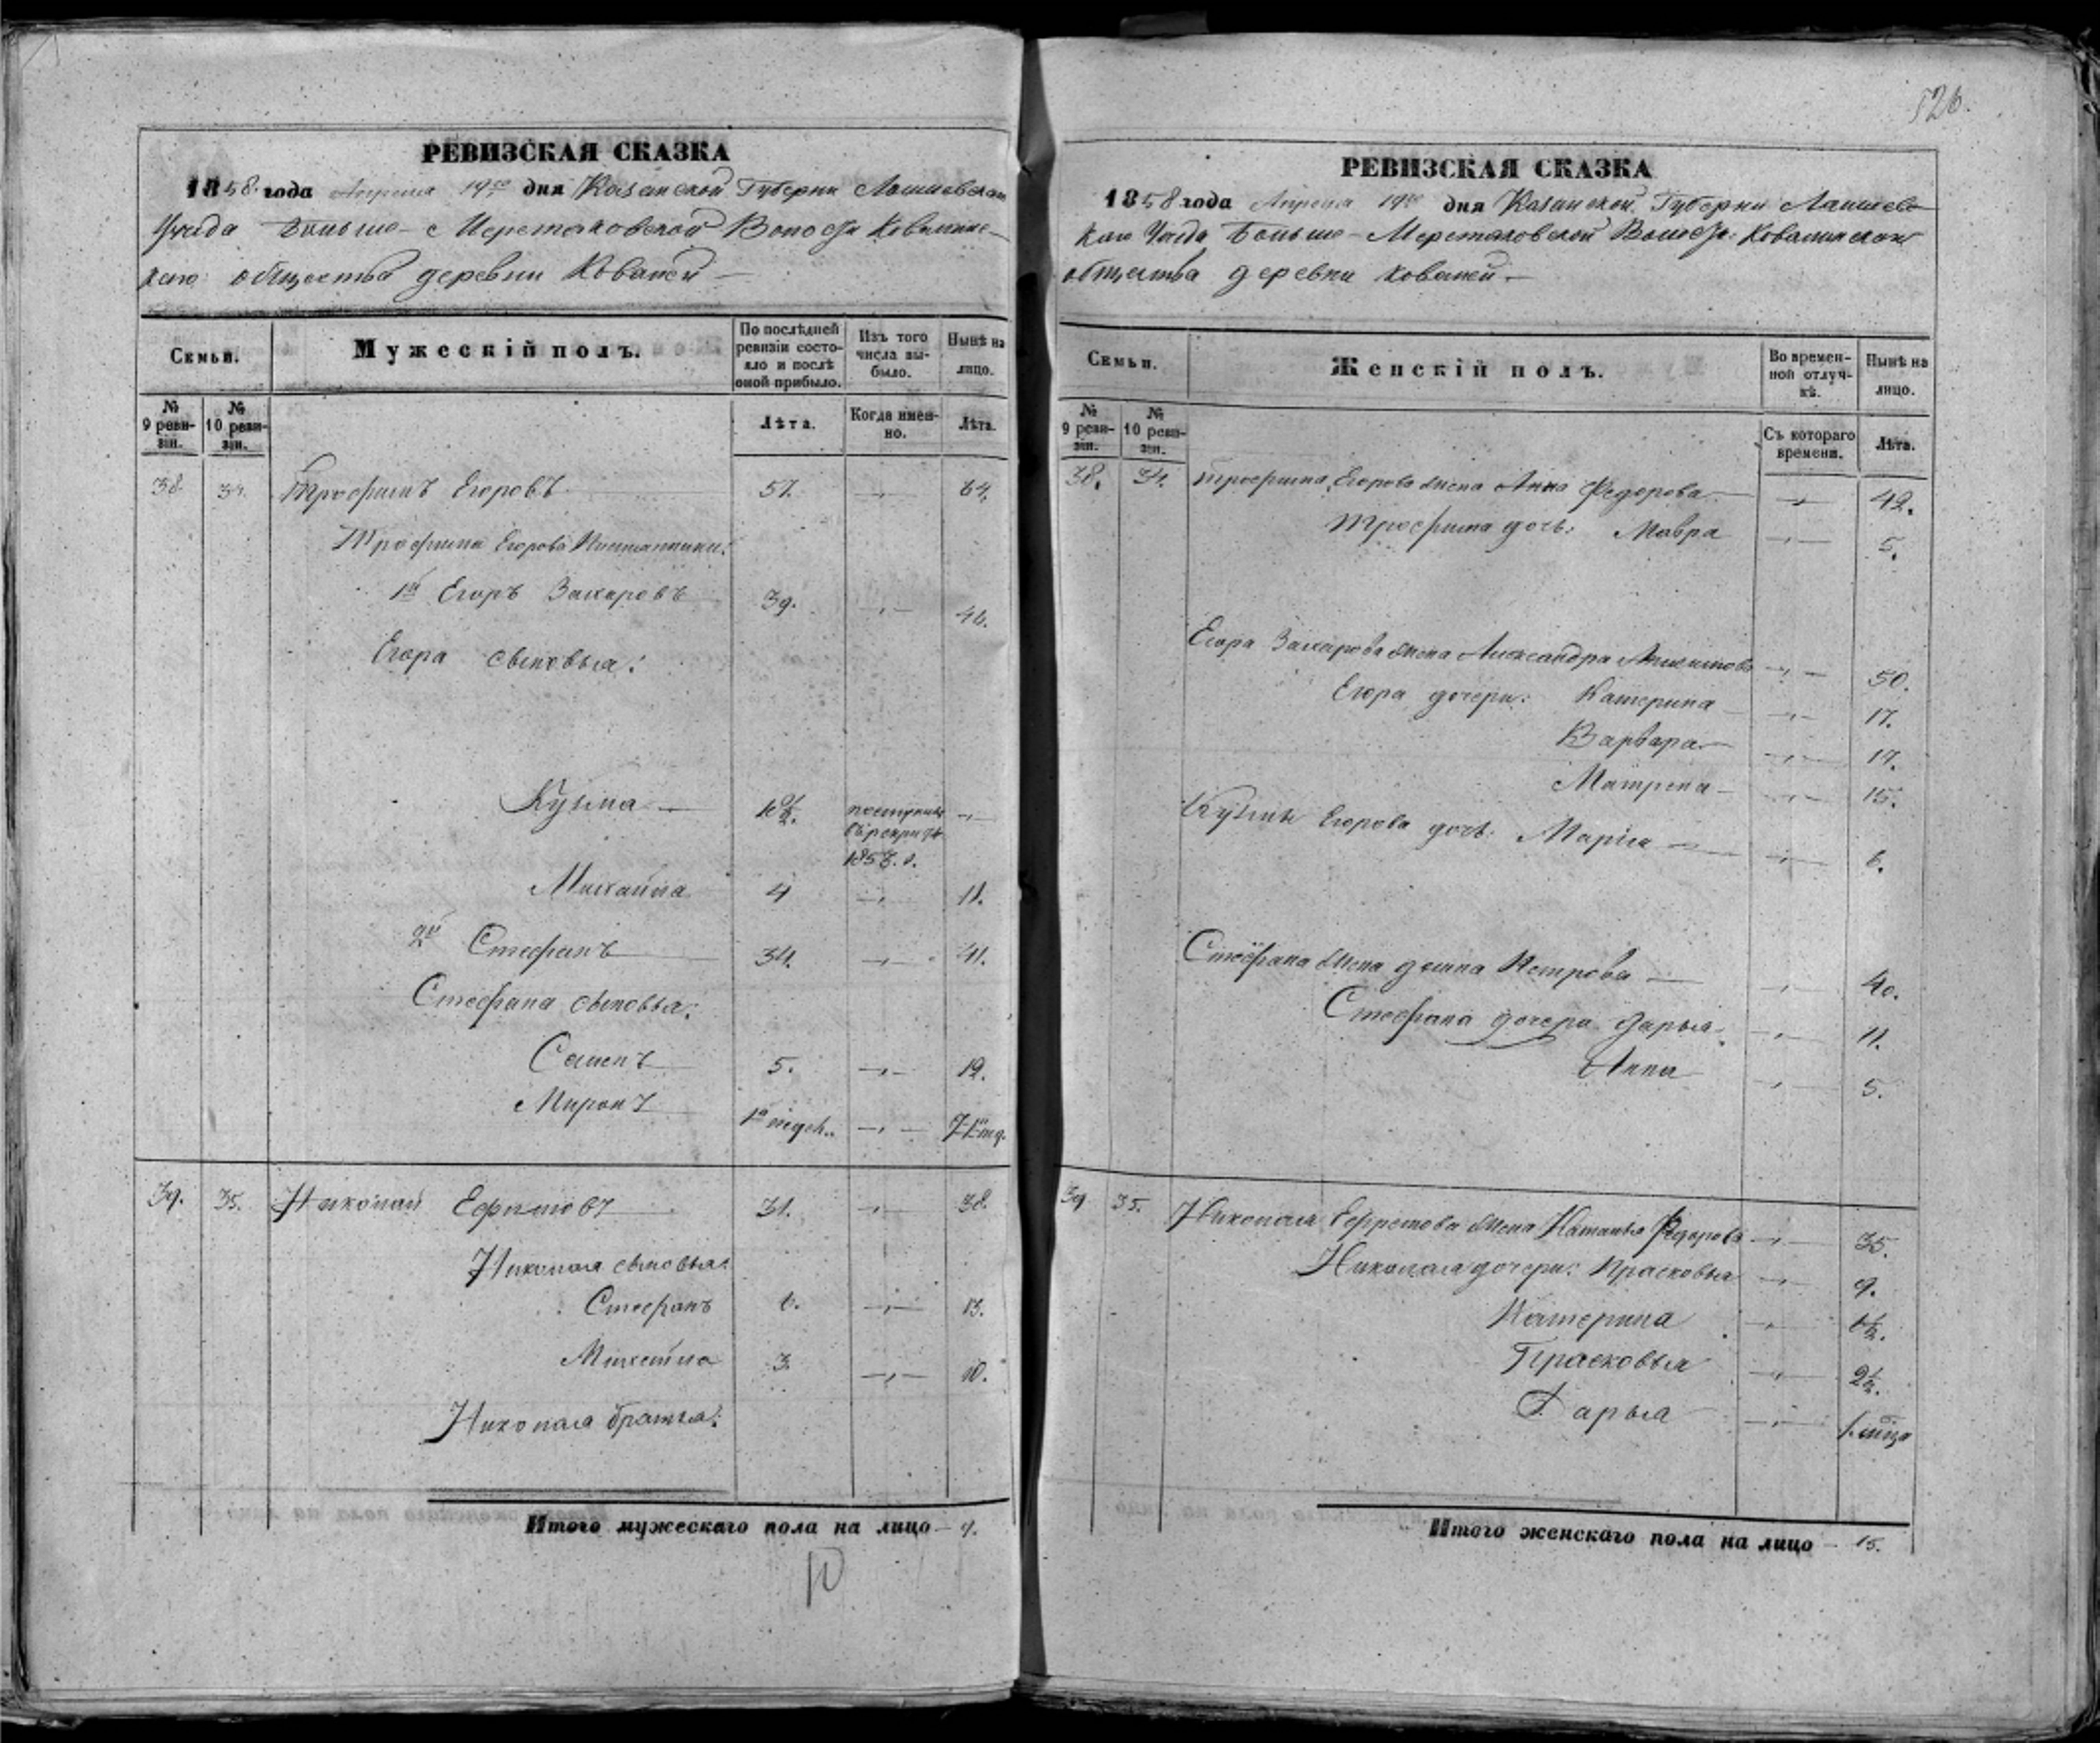 526.
РЕВИЗСКАЯ СКАЗКА
1858 года Апреля 19го дня Казанской Губернии Лаишевскаго
Уезда Больше-Меретяковской Волости Ковалинс-
каго общества деревни Ковалей
Семьи.
Мужескій полъ.
По послѣдней ревизіи состояло и послѣ оной прибыло.
Изъ того числа выбыло.
Нынѣ на лицо.
№ 9 ревизіи.
№ 10 ревизіи.
Лѣта.
Когда именно.
Лѣта.
38. 34. Трофимъ Егоровъ 57. —„— 64.
Трофима Егорова
1й Егоръ Захаровъ 39. —„— 46.
Егора сыновья:
Кузьма — 10½. поступилъ
въ рекруты —„—
185 г.
Михайла 4 —„— 11.
2й Стефанъ 34. —„— 41.
Стефана сыновья:
Семенъ 5. —„— 12.
Миронъ 1 недел. —„— 7
39. 35. Николай Ефимовъ 31. —„— 38
Николая сыновья:
Стефанъ 6. —„— 13.
Михайла 3 —„— 10.
Николая братья:
Итого мужескаго пола на лицо — 9.
10
РЕВИЗСКАЯ СКАЗКА
1858 года Апреля 19го дня Казанской Губернии Лаишевс-
каго Уезда Больше-Меретяковской Волости Ковалинскаго
общества деревни Ковалей.—
Семьи.
Женскій полъ.
Во временной отлучкѣ.
Нынѣ на лицо.
№ 9 ревизіи.
№ 10 ревизіи.
Съ котораго времени.
Лѣта.
38. 34. Трофима Егорова жена Анна Федорова —„— 42.
Трофима дочь: Мавра —„— 5.
Егора Захарова жена Александра —„— 50.
Егора дочери: Катерина —„— 17.
Варвара —„— 17.
Матрена —„— 15.
Кузьмы Егорова дочь: Марія —„— 6.
Стефана жена Домна Петрова —„— 40.
Стефана дочери Дарья —„— 11.
Анна —„— 5.
39 35. Николая Ефимова жена Наталья Федорова —„— 35.
Николая дочери: Прасковья —„— 9.
Катерина —„—
Прасковья —„— 2½.
Дарья —„—
Итого женскаго пола на лицо — 15.